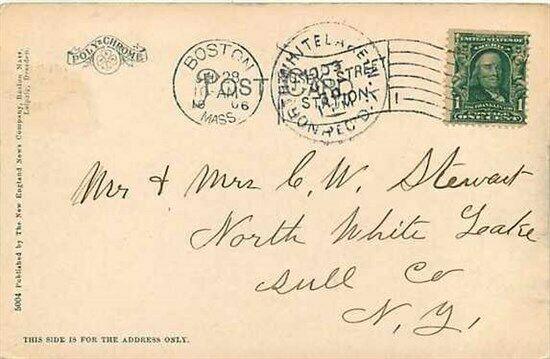 POLY-CHROME
BOSTON
28
AM
06
MASS.
POST CARD
WHITE LAKE
STREET
STATION
REC'D
UNITED STATES
1 1
ONE CENT
Mr & Mrs C. W. Stewart
North White Lake
Sull Co
N. Y.
5004 Published by The New England News Company, Boston Mass.
Leipzig, Dresden.
THIS SIDE IS FOR THE ADDRESS ONLY.